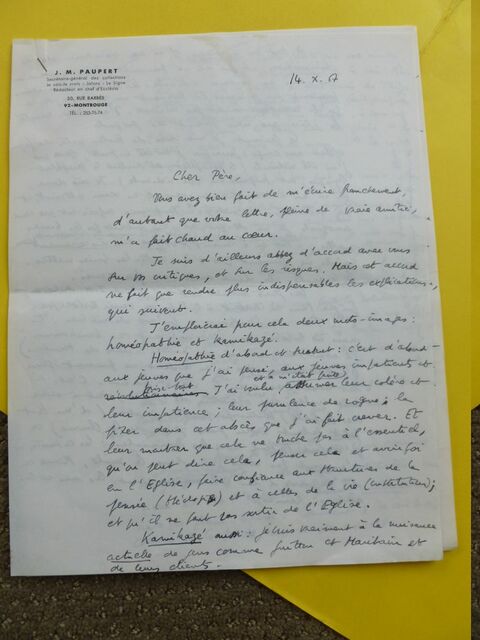 J. M. PAUPERT
Secrétaire-général des collections
Je sais-Je crois - Jalons - Le Signe
Rédacteur en chef d'Ecclésia
30, RUE BARBÈS
92-MONTROUGE
TÉL. : 253-75-74
14. X. 67
Cher Père,
Vous avez bien fait de m'écrire franchement,
d'autant que votre lettre, pleine de vraie amitié,
m'a fait chaud au cœur.
Je suis d'ailleurs assez d'accord avec vous
sur vos critiques, et sur les risques. Mais cet accord
ne fait que rendre plus indispensables les explications,
qui suivent.
J'emploierai pour cela deux mots-images :
homéopathie et Kamikazé.
Homéopathie d'abord et surtout : c'est d'abord
aux jeunes que j'ai pensé, aux jeunes impatients et
J'ai voulu assumer leur colère et
leur impatience ; leur purulence de rogne ; la
fixer dans cet abcès que j'ai fait crever. Et
leur montrer que cela ne touche pas à l'essentiel,
qu'on peut dire cela, penser cela et avoir foi
en l'Eglise, faire confiance aux structures de la
pensée et à celles de la vie (institution) ;
et qu'il ne faut pas sortir de l'Eglise.
Kamikazé aussi : je crois vraiment à la nuisance
actuelle de gens comme Guitton et Maritain et
de leurs clients.